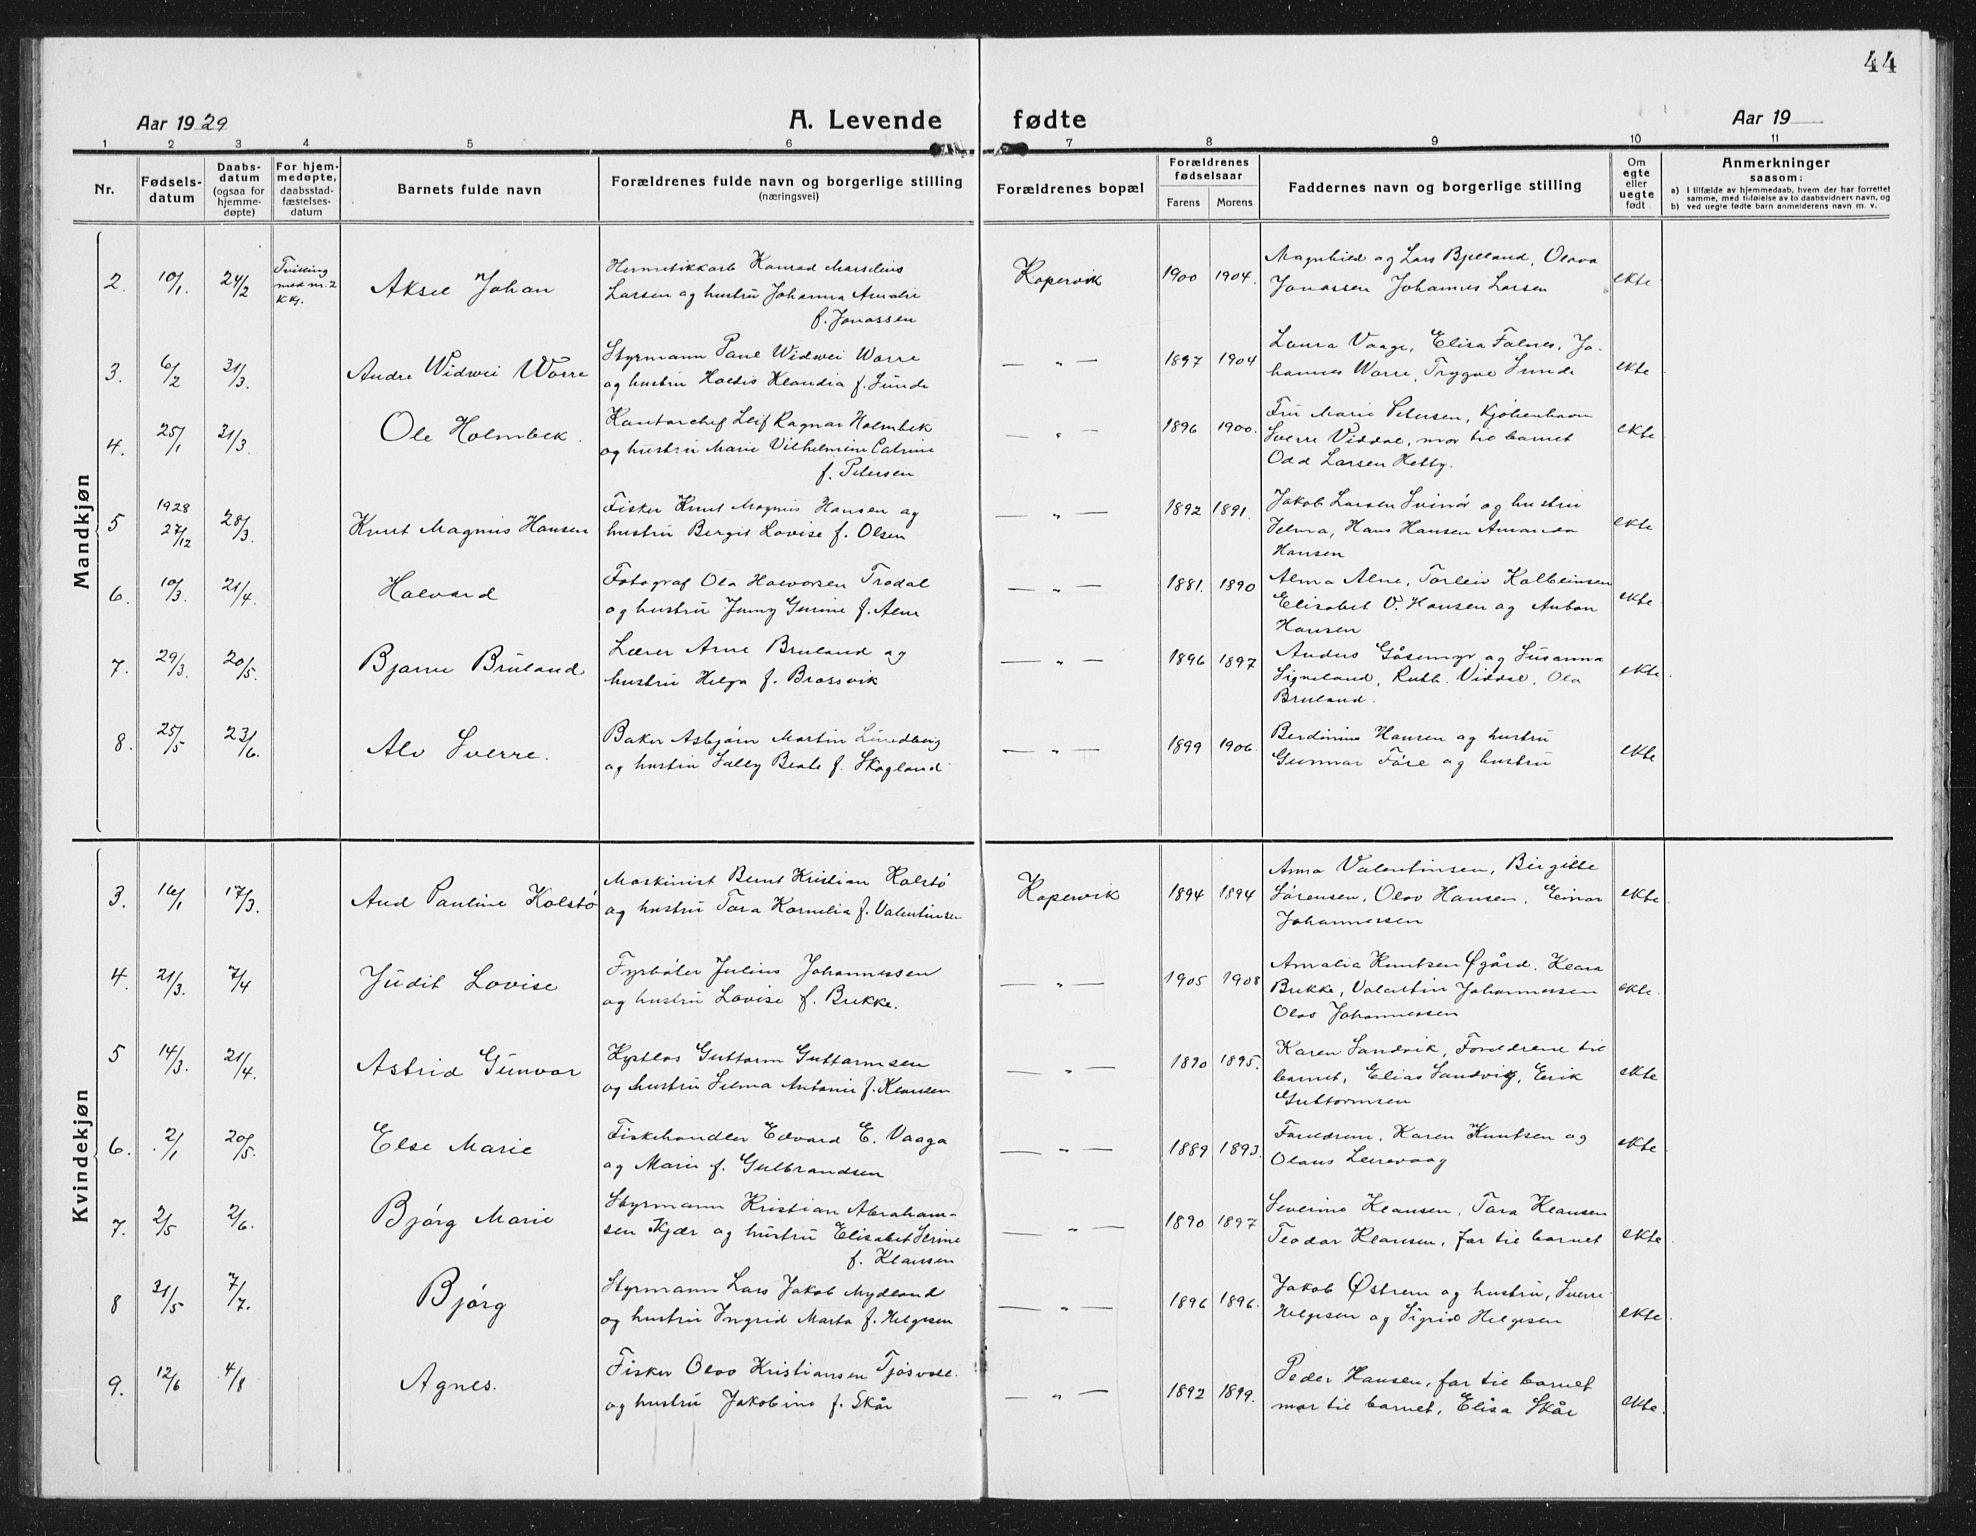 44
Aar 1929
A. Levende fødte
Aar 19
1 2 3 4 5 6 7 8 9 10 11
Nr.
Fødsels-
datum
Daabs-
datum
(ogsaa for
hjemme-
døpte)
For hjem-
medøpte,
daabsstad-
fæstelses-
datum
Barnets fulde navn
Forældrenes fulde navn og borgerlige stilling
(næringsvei)
Forældrenes bopæl
Forældrenes
fødselsaar
Farens Morens
Faddernes navn og borgerlige stilling
Om
egte
eller
uegte
født
Anmerkninger
saasom:
a) I tilfælde av hjemmedaab, hvem der har forrettet
samme, med tilføielse av to daabsvidners navn, og
b) ved uegte fødte barn anmelderens navn m. v.
Mandkjøn
2. 10/1. 24/2
Tvilling
med nr. 2
K Kj.
Aksel Johan
Hermetikkarb Konrad Marselius
Larsen og hustru Johanna Amalie
f. Jonassen
Kopervik
1900 1904.
Magnhild og Lars Bjelland, Olava
Jonassen Johannes Larsen
ekte
3. 6/2 31/3.
Andre Widwei Worre
Styrmann Paul Widwei Worre
og hustru Haldis Klaudia f. Sunde
— " —
1897 1904
Laura Vaage, Elisa Falnes, Jo-
hannes Worre, Trygve Sunde
ekte
4. 25/1 31/3.
Ole Holmbek.
Kontorchef Leif Ragnar Holmbek
og hustru Marie Vilhelmine Catrine
f. Petersen
— " —
1896 1900.
Fru Marie Petersen, Kjøbenhavn
Sverre Viddal, mor til barnet
Odd Larsen Hetty.
ekte
5 1928 27/12 28/3.
Knut Magnus Hansen
Fisker Knut Magnus Hansen og
hustru Bergit Lovise f. Olsen
— " —
1892 1891.
Jakob Larsen Svinør og hustru
Selma, Hans Hansen Amanda
Hansen
ekte
6. 10/3. 21/4.
Halvard
Fotograf Ola Halvorsen Trodal
og hustru Jenny Gurine f. Alne
— " —
1881. 1890
Alma Alne, Torleiv Kolbeinsen
Elisabet V. Hansen og Anton
Hansen
ekte
7. 29/3. 20/5.
Bjarne Bruland
Lærer Arne Bruland og
hustru Helga f. Brossvik
— " —
1896 1897
Anders Gåsemyr og Susanna
Signeland, Ruth Viddal, Ola
Bruland.
ekte
8. 25/5 23/6.
Alv Sverre.
Baker Asbjørn Martin Lundberg
og hustru Sally Beate f. Skogland
— " —
1899 1906
Berdinius Hansen og hustru
Gunnar Føre og hustru
ekte
Kvindekjøn
3. 16/1 17/3.
Aud Pauline Kolstø
Maskinist Bernt Kristian Kolstø
og hustru Tora Kornelia f. Valentinsen
Kopervik
1894 1894
Anna Valentinsen, Birgitte
Sørensen, Olav Hansen, Einar
Johannessen
ekte
4. 21/3. 7/4
Judit Lovise
Fyrbøter Julius Johannessen
og hustru Lovise f. Bukke.
— " —
1905 1908
Amalia Knutsen Øgård, Klara
Bukke, Valentin Johannessen
Olav Johannessen
ekte.
5 14/3. 21/4.
Astrid Gunvor
Kystlos Guttorm Guttormsen
og hustru Selma Antonie f. Klausen
— " —
1890 1895.
Karen Sandvik, Foreldrene til
barnet, Elias Sandvig, Erik
Guttormsen
ekte
6. 2/1 20/5.
Else Marie
Fiskehandler Edvard E. Vaaga
og Marie f. Gulbrandsen
— " —
1889 1893.
Foreldrene, Karen Knutsen og
Olaus Leirevaag
ekte
7. 2/5 2/6.
Bjørg Marie
Styrmann Kristian Abraham-
sen Kjær og hustru Elisabet Serine
f. Klausen
— " —
1890 1897
Severine Klausen, Tora Klausen
Teodor Klausen, far til barnet
ekte
8 31/5 7/7.
Bjørg
Styrmann Lars Jakob Mydland
og hustru Ingrid Marta f. Helgesen
— " —
1896 1896.
Jakob Østrem og hustru, Sverre
Helgesen og Sigrid Helgesen
ekte
9. 12/6 4/8
Agnes.
Fisker Olav Kristiansen Tjøsvoll
og hustru Jakobine f. Skår
— " —
1892 1899.
Peder Hansen, far til barnet
mor til barnet, Elisa Skår
ekte.